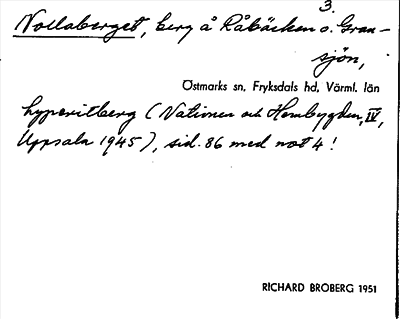 3.
Nollaberget, berg å Råbäcken ö. Gran-
sjön,
Östmarks sn, Fryksdals hd, Värml. län
hyperitberg (Nationen och Hembygden, IV,
Uppsala 1945), sid. 86 med not 4!
RICHARD BROBERG 1951